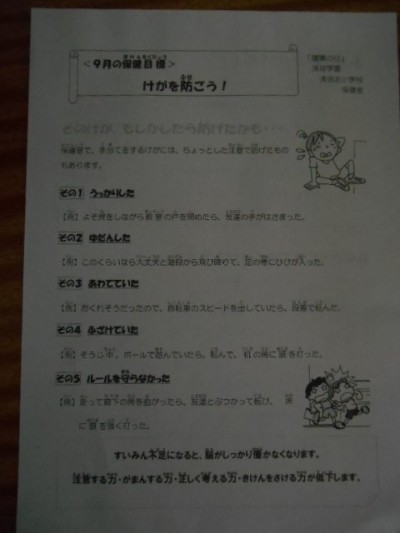 ＜９月の保健目標＞
けがを防ごう！
「健康の日」
小学校
保健室
そのけが、もしかしたら防げたかも・・・
保健室で、手当てをするけがには、ちょっとした注意で防げたもの
もあります。
その１ うっかりした
【例】よそ見をしながら教室の戸を閉めたら、友達の手がはさまった。
その２ ゆだんした
【例】このくらいなら大丈夫と階段から飛び降りて、足の骨にひびが入った。
その３ あわてていた
【例】おくれそうだったので、自転車のスピードを出していたら、段差で転んだ。
その４ ふざけていた
【例】そうじ中、ボールで遊んでいたら、転んで、机の角に頭を打った。
その５ ルールを守らなかった
【例】走って廊下の角を曲がったら、友達とぶつかって転び、床
に頭を強く打った。
すいみん不足になると、脳がしっかり働かなくなります。
注意する力・がまんする力・正しく考える力・きけんをさける力が低下します。